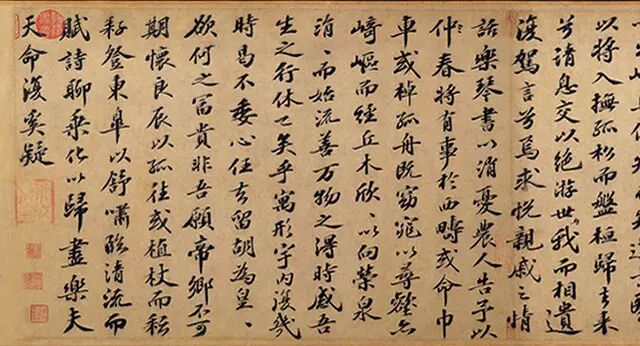 以將入撫孤松而盤桓歸去来
兮請息交以絕游世我而相遺
復駕言兮焉求悅親戚之情
話樂琴書以消憂農人告予以
仲春將有事於西疇或命巾
車或棹孤舟既窈窕以尋壑亦
崎嶇而經丘木欣、以向榮泉
涓、而始流善萬物之得時感吾
生之行休已矣乎寓形宇内復幾
時曷不委心任去留胡為皇、
欲何之富貴非吾願帝鄉不可
期懷良辰以孤往或植杖而耘
耔登東皋以舒嘯臨清流而
賦詩聊乘化以歸盡樂夫
天命復奚疑